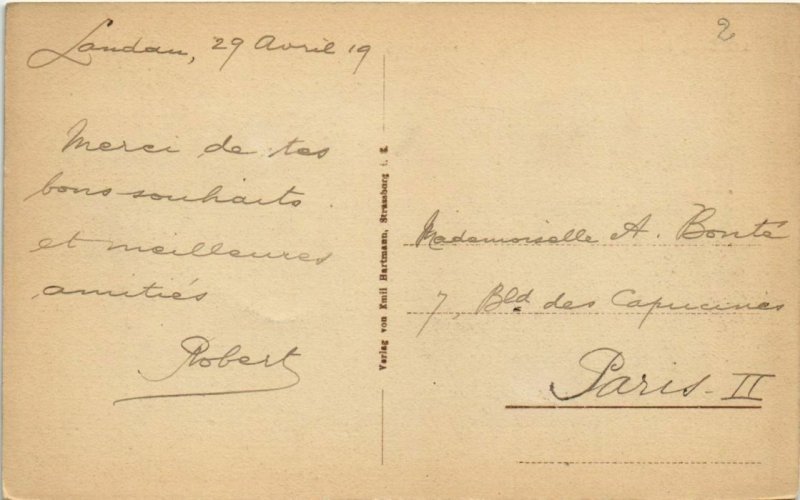 Landau, 29 Avril 19
Merci de tes
bons souhaits
et meilleures
amitiés
Robert
Verlag von Emil Hartmann, Strassburg i. E.
2
Mademoiselle A. Bonté
7, Bld des Capucines
Paris - II